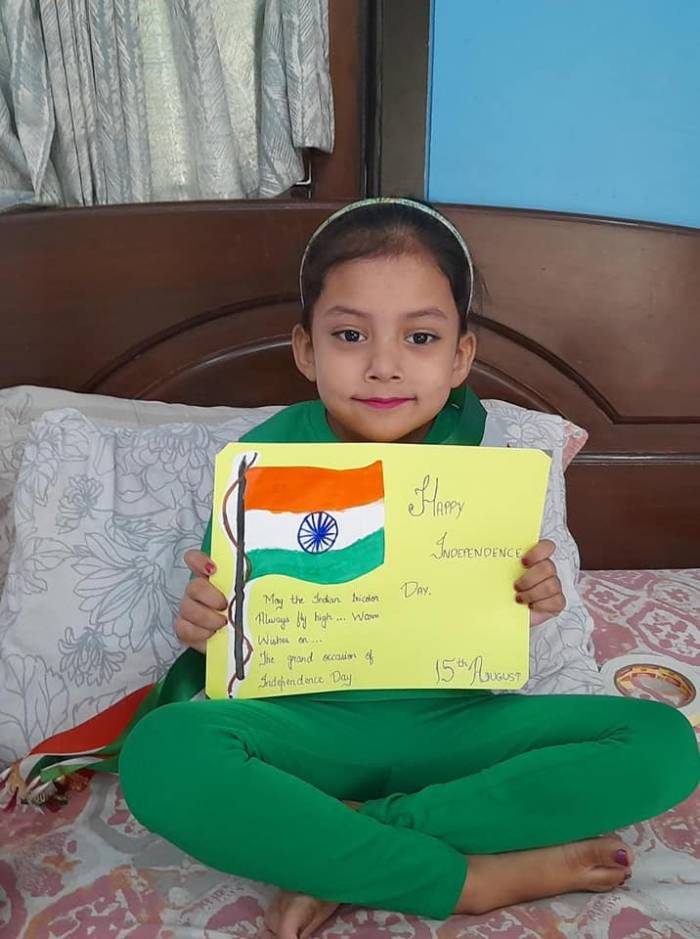 Happy
Independence
Day.
May the Indian tricolor
Always fly high ... Warm
Wishes on ...
The grand occasion of
Independence Day
15th August